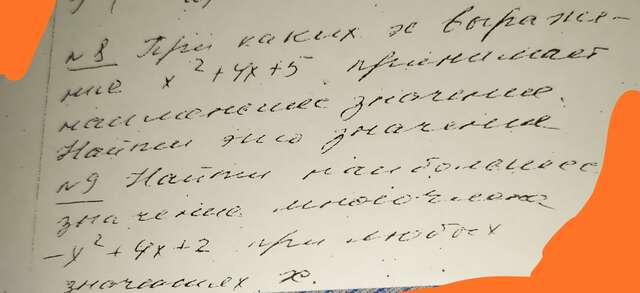 №8 При каких x выраже-
ние x² + 4x + 5 принимает
наименьшее значение.
Найти это значение
№9 Найти наибольшее
значение многочлена
-x² + 4x + 2 при любых
значениях x.